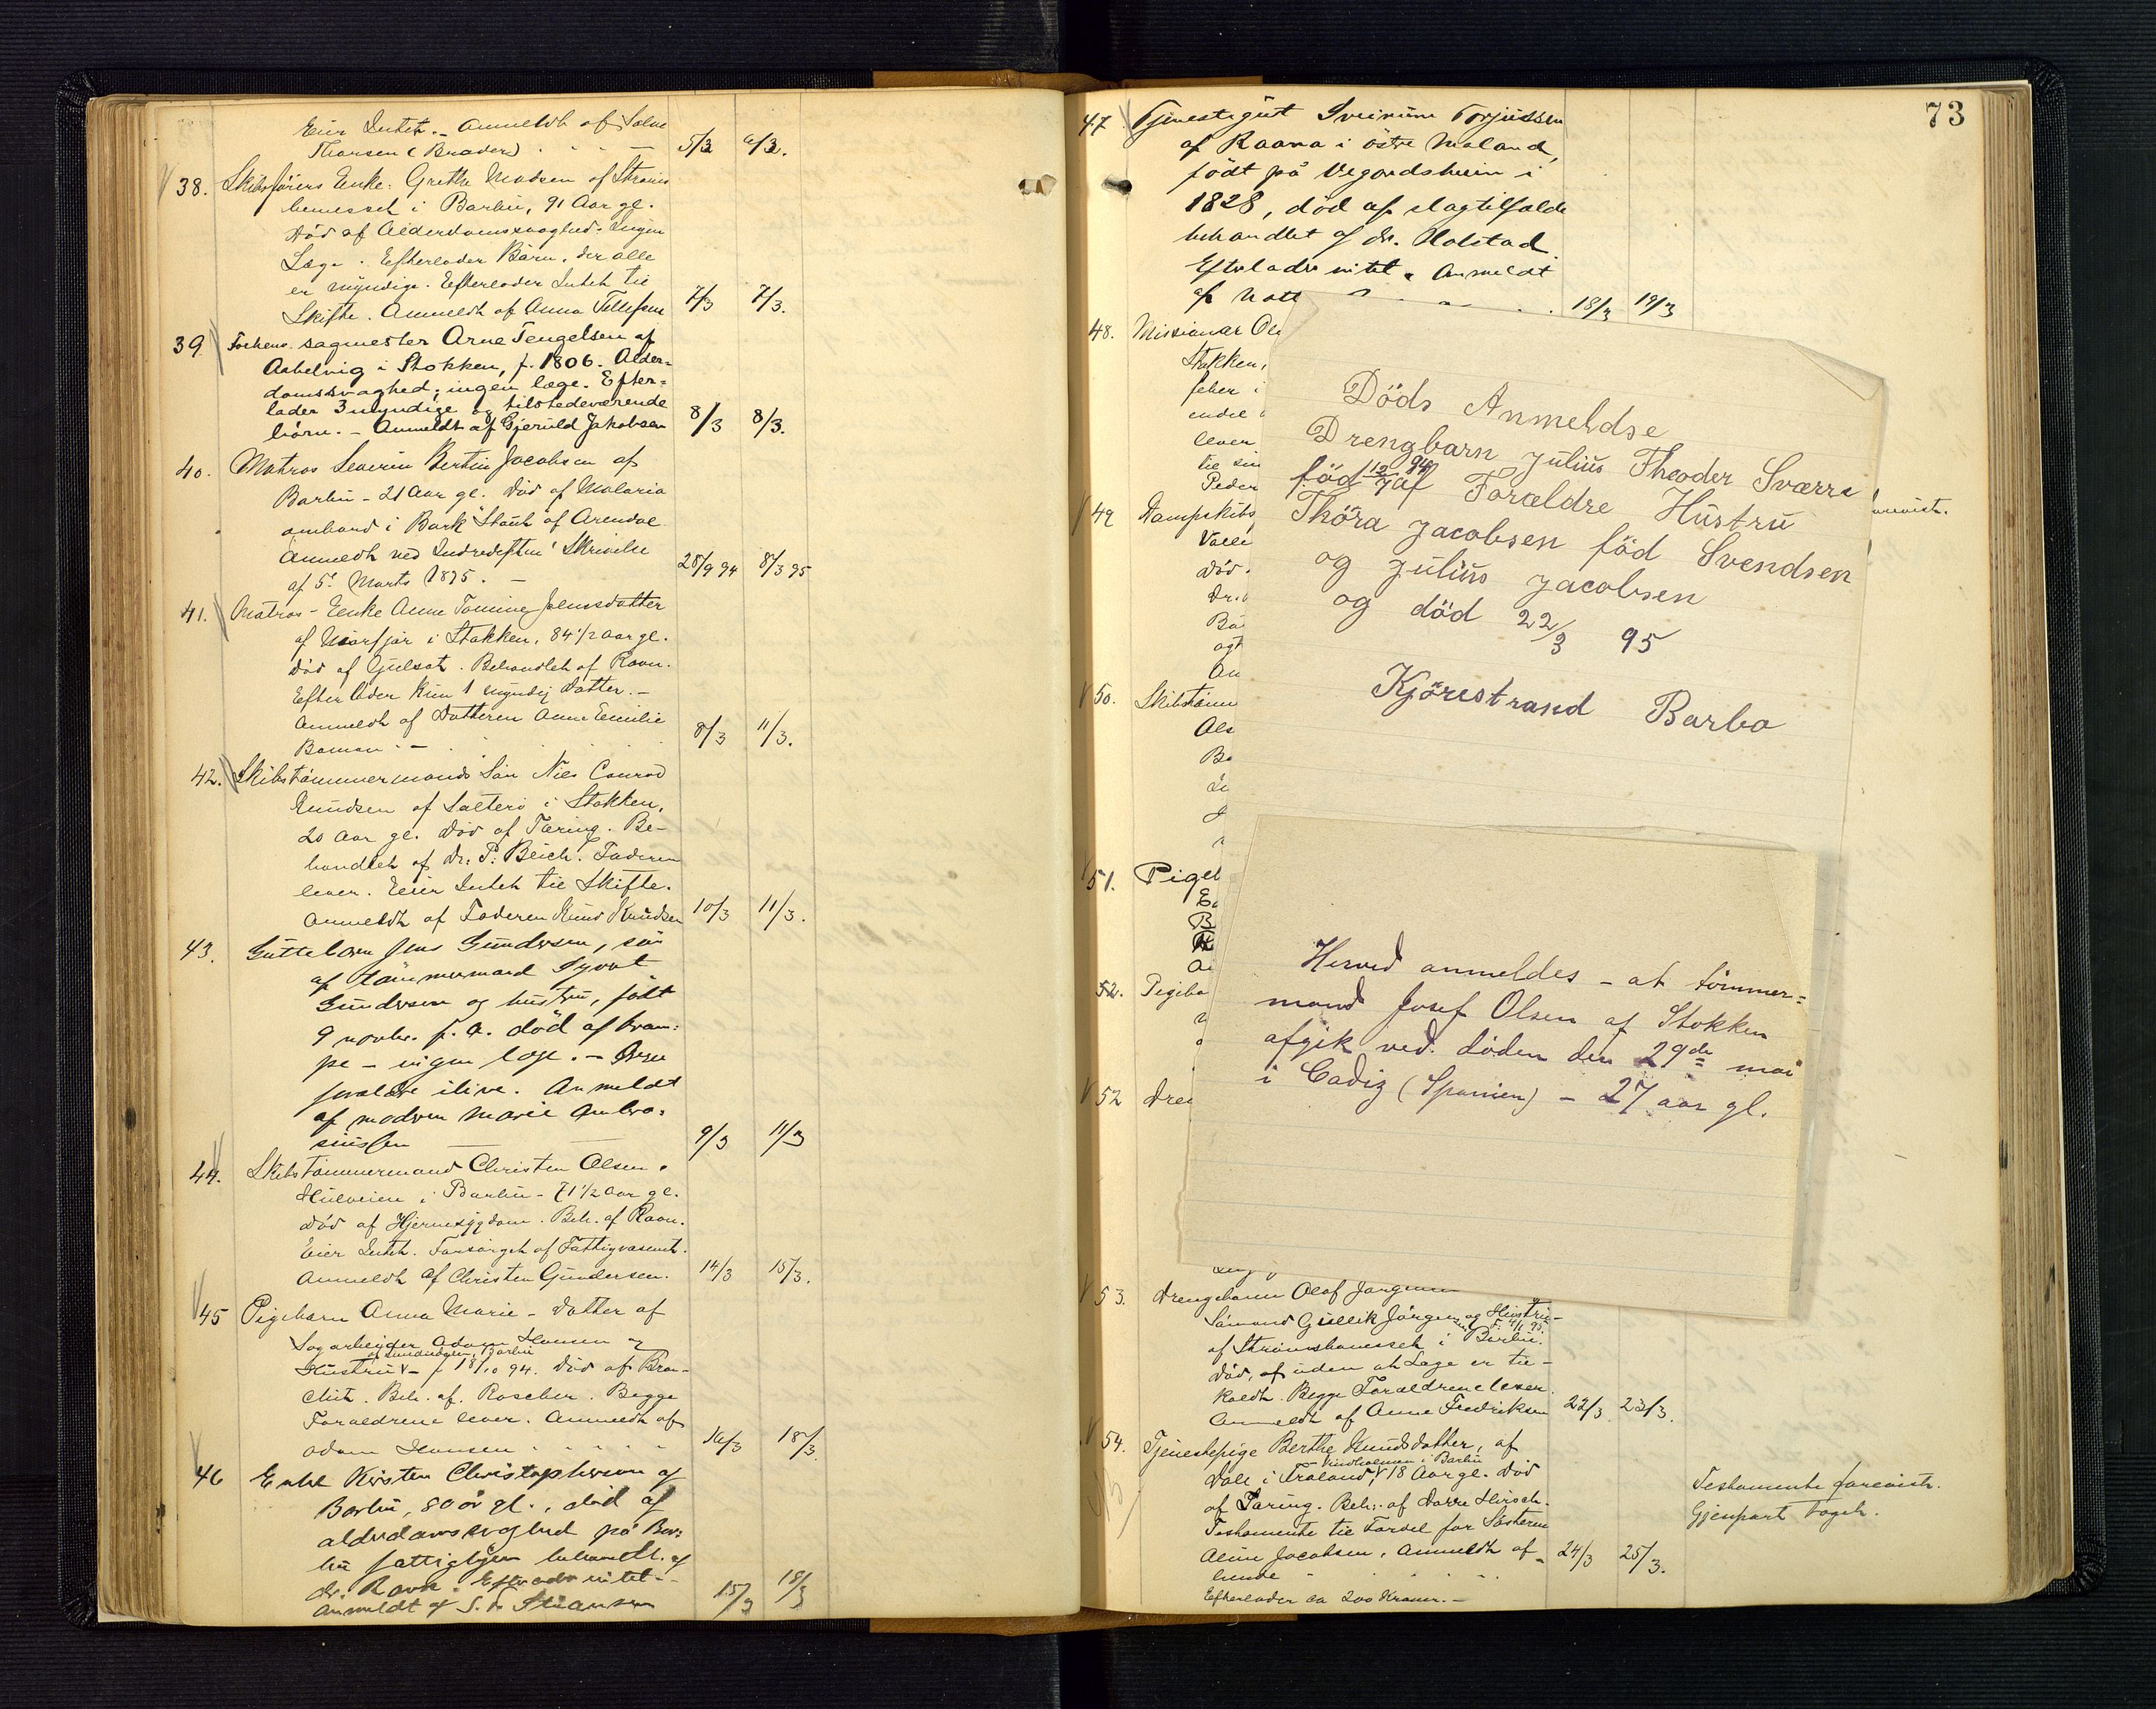 Eier Intet. – Anmeldt af Salve
Tharsen (Broder) 5/3 6/3.
38. Skibsførers Enke: Grethe Madsen af Strøms
bunesset i Barbu, 91 Aar gl.
Død af Alderdomssvaghed. Ingen
Læge. Efterlader Børn, der alle
er myndige. Efterlader Intet til
Skifte. Anmeldt af Anna Tellefsen 7/3 7/3.
39. Forhenv. sagmester Arne Tengelsen af
Asbelvig i Stokken, f. 1806. Alder=
domssvaghed; ingen læge. Efter=
lader 3 myndige og tilstedeværende
børn. – Anmeldt af Gjeruld Jakobsen 8/3 8/3.
40. Matros Severin Bertin Jacobsen af
Barbu – 21 Aar gl. Død af Malaria
ombord i Bark "Stault" af Arendal
Anmeldt ved Indredeptm' Skrivelse
af 5' Marts 1895. – 28/9 94 8/3 95
41. Matros-Enke Anne Tomine Jensdatter
af Narfjør i Stokken, 84 1/2 aar gl.
Død af Gulsot. Behandlet af Ravn.
Efterlader kun 1 myndig Datter. –
Anmeldt af Datteren Anne Emilie
Boman. – 8/3 11/3.
42. Skibstømmermands Søn Niels Conrad
Knudsen af Salterø i Stokken,
20 Aar gl. Død af Tæring. Be-
handlet af Dr. P. Beich. Faderen
lever. Eier Intet til Skifte.
Anmeldt af Faderen Knud Knudsen 10/3 11/3.
43. Guttebarn Jens Gundersen, søn
af tømmermand Syvert
Gundersen og hustru, født
9 novbr. f. a. død af kram=
pe – ingen læge. – Begge
forældre ilive. Anmeldt
af modren Marie Ambro=
siussen 9/3 11/3
44. Skibstømmermand Christen Olsen,
Hulveien i Barbu – 71 1/2 Aar gl.
Død af Hjernesygdom. Beh. af Ravn.
Eier Intet. Forsørget af Fattigvæsenet.
Anmeldt af Christen Gundersen. 14/3 15/3.
45 Pigebarn Anna Marie – Datter af
Sagarbeider Adam Hansen og
Hustru – f 18/10 94. Død af Bron-
chit. Beh. af Roscher. Begge
Forældrene lever. Anmeldt af
Adam Hansen 16/3 18/3.
46 Enke Kirsten Christophersen af
Barbu, 80 år gl., død af
alderdomssvaghed på Bar=
bu fattiggjem behandlt. af
dr. Ravn. Efterlader intet. –
Anmeldt af S. A. Stiansen 15/3 18/3
73
47 Tjenestegut Sveinum Torjussen
af Raana i østre Moland,
født på Vegardsheien i
1828, død af slagtilfælde
behandlet af dr. Holstad
Efterlader intet. Anmeldt
af Natt 18/3 19/3
48. Missionær
Stokken,
feber i
endel
lever
til sin
Peder
49 Dampskibs
Valle
Død.
Dr.
Bø
agt
An
50. Skibstømm
Als
Ba
51. Pigeb
52. Pigeba
52 Dren
Døds Anmeldse
Drengbarn Julius Theoder Sværre
fød 12/7 94 af Forældre Hustru
Thöra Jacobsen föd Svendsen
og Julius Jacobsen
og död 22/3 95
Kjörestrand Barbo
Herved anmeldes – at tømmer=
mand Josef Olsen af Stokken
afgik ved døden den 29de mai
i Cadiz (Spanien) – 27 aar gl.
53. Drengebarn Olaf Jørgensen
Sømand Gullik Jørgensen og Hustru –
f. 4/1 95
af Strømsbunesset i Barbu.
Død, af uden at Læge er til-
kaldt. Begge Forældrene lever.
Anmeldt af Anne Fredriksen 22/3 23/3.
54. Tjenestepige Berthe Knudsdatter, af
Vindholmen i Barbu
Dale i Froland, 18 Aar gl. Død
af Tæring. Beh. af Dorre Hirsch.
Testamente til Fordel for Søsteren
Aline Jacobsen. Anmeldt af
hende 24/3 25/3.
Efterlader ca 200 Kroner. –
Testamente forevist.
Gjenpart taget.